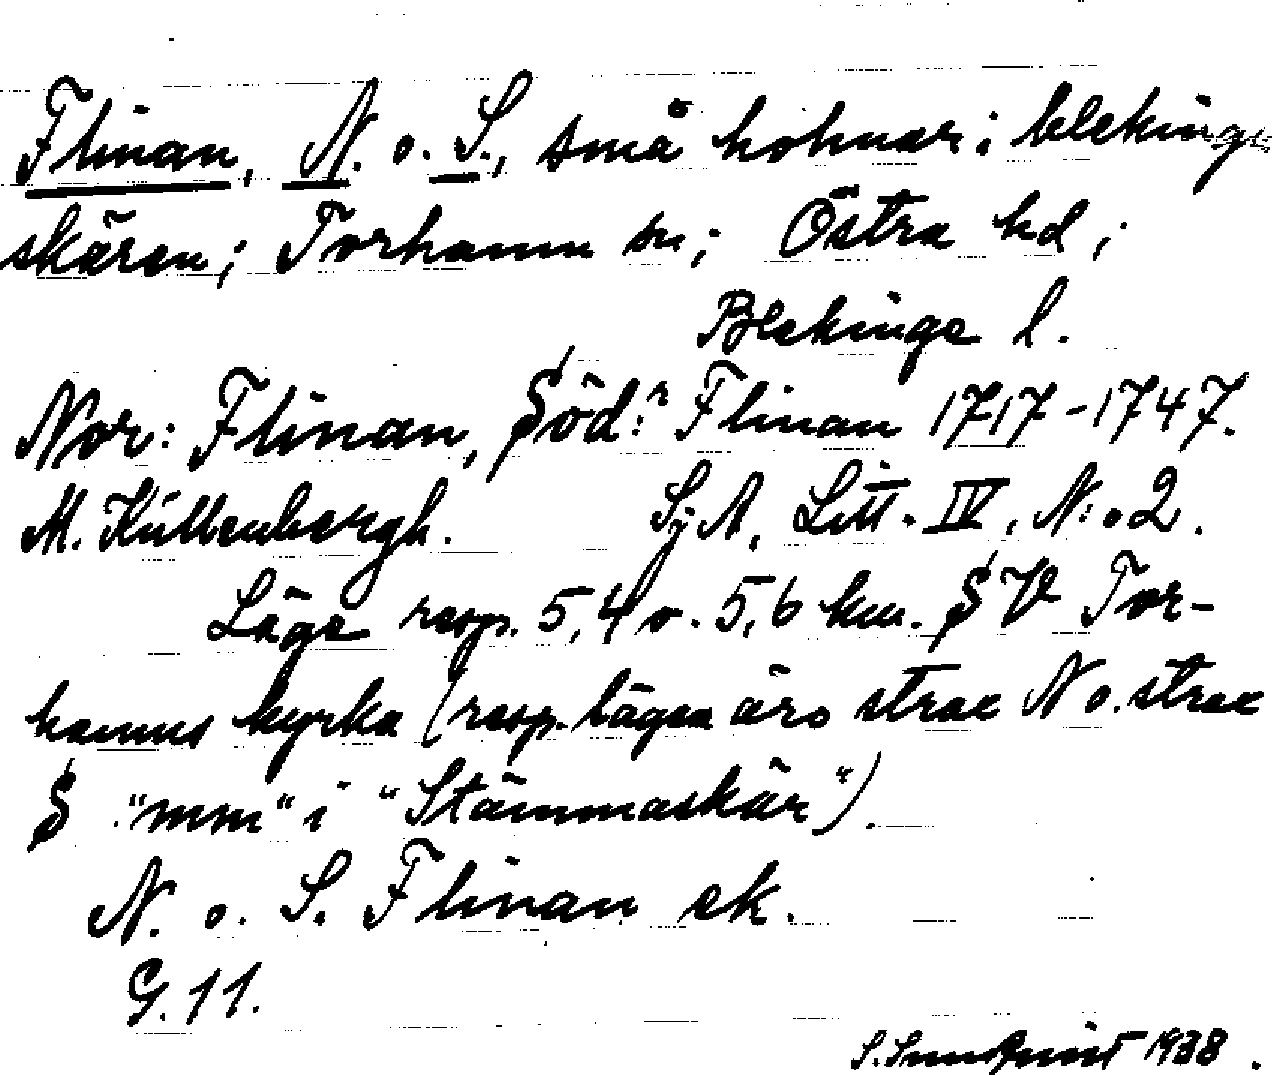 Flinan, N. o. S., små holmar i blekinge
skären; Torhamn sn; Östra hd;
Blekinge l.
Nor: Flinan, Söd:r Flinan 1717-1747.
M. Küllenbergh. SjA, Litt. IV, N:o 2.
Läge resp. 5,4 o. 5,6 km. S V Tor-
hamns kyrka (resp. lägen äro strax N o. strax
S "mm" i "Stämmaskär").
N. o. S. Flinan ek.
G. 11.
S. Sundqvist 1938.